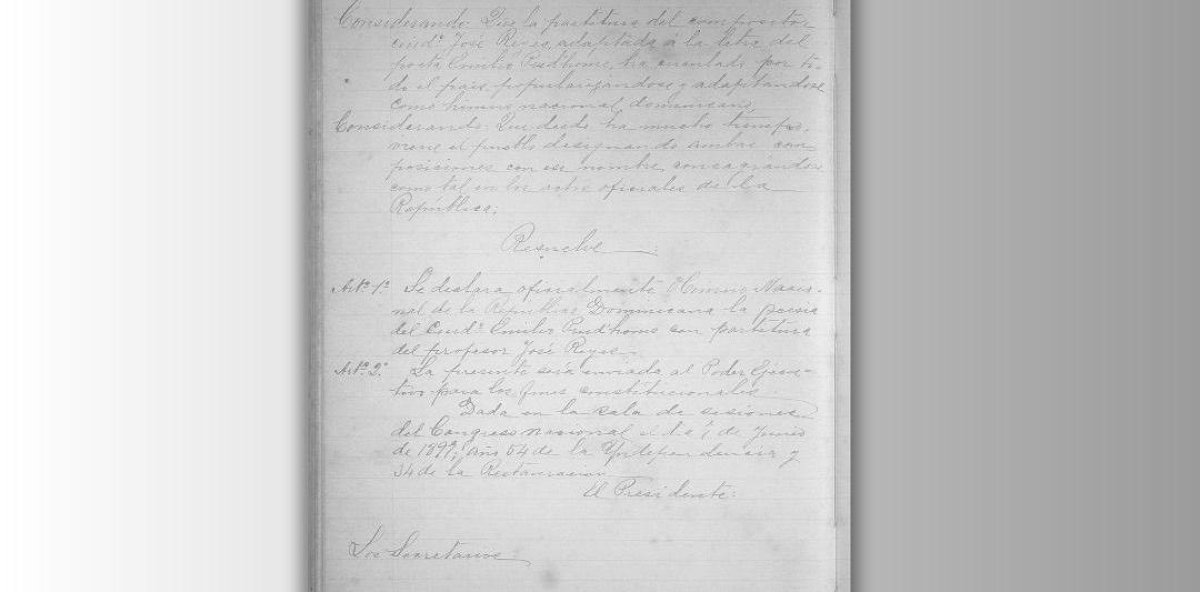 Considerando: Que la partitura del compositor
ciudº José Reyes, adaptada á la letra del
poeta Emilio Prud'homme, ha circulado por to-
do el país, popularizándose y adaptándose
como himno nacional dominicano,
Considerando: Que desde ha mucho tiempo,
viene el pueblo designando ambas com
posiciones con ese nombre, consagrándose
como tal en los actos oficiales de la
República;
Resuelve
Artº 1º Se declara oficialmente Himno Nacio-
nal de la República Dominicana la poesía
del Ciudº Emilio Prud'homme con partitura
del profesor José Reyes.
Artº 2º La presente será enviada al Poder Ejecu-
tivo para los fines constitucionales.
Dada en la sala de sesiones
del Congreso nacional de Junio
de 1897, año 54 de la Yndependencia y
34 de la Restauracion
El Presidente:
Los Secretarios